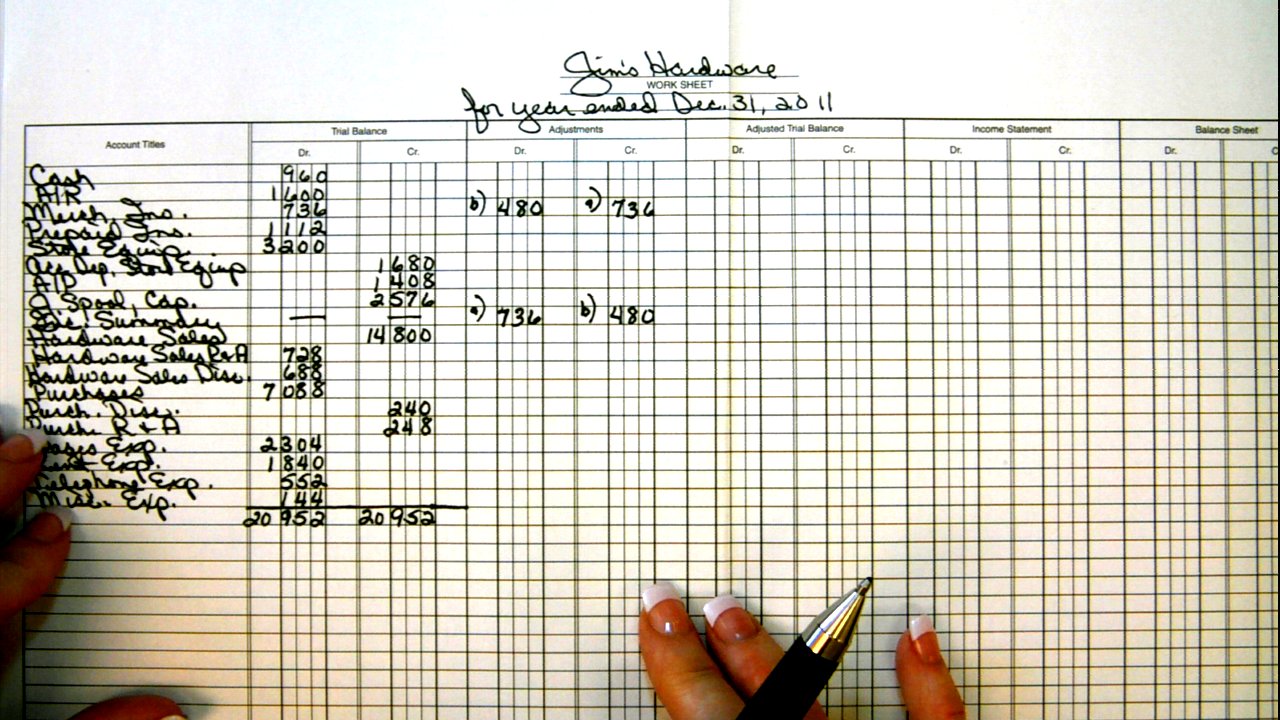 Jim's Hardware
WORK SHEET
for year ended Dec. 31, 2011
Account Titles Trial Balance Adjustments Adjusted Trial Balance Income Statement Balance Sheet
Dr. Cr. Dr. Cr. Dr. Cr. Dr. Cr. Dr. C
Cash 960
A/R 1600
Merch. Inv. 736 b) 480 a) 736
Prepaid Ins. 1112
Store Equip. 3200
Acc Dep, Store Equip 1680
A/P 1408
J. Spool, Cap. 2576
Inc. Summary — — a) 736 b) 480
Hardware Sales 14 800
Hardware Sales R+A 728
Hardware Sales Disc. 688
Purchases 7 088
Purch. Disc. 240
Purch. R + A 248
Wages Exp. 2304
Rent Exp. 1840
Telephone Exp. 552
Misc. Exp. 144
20 952 20 952